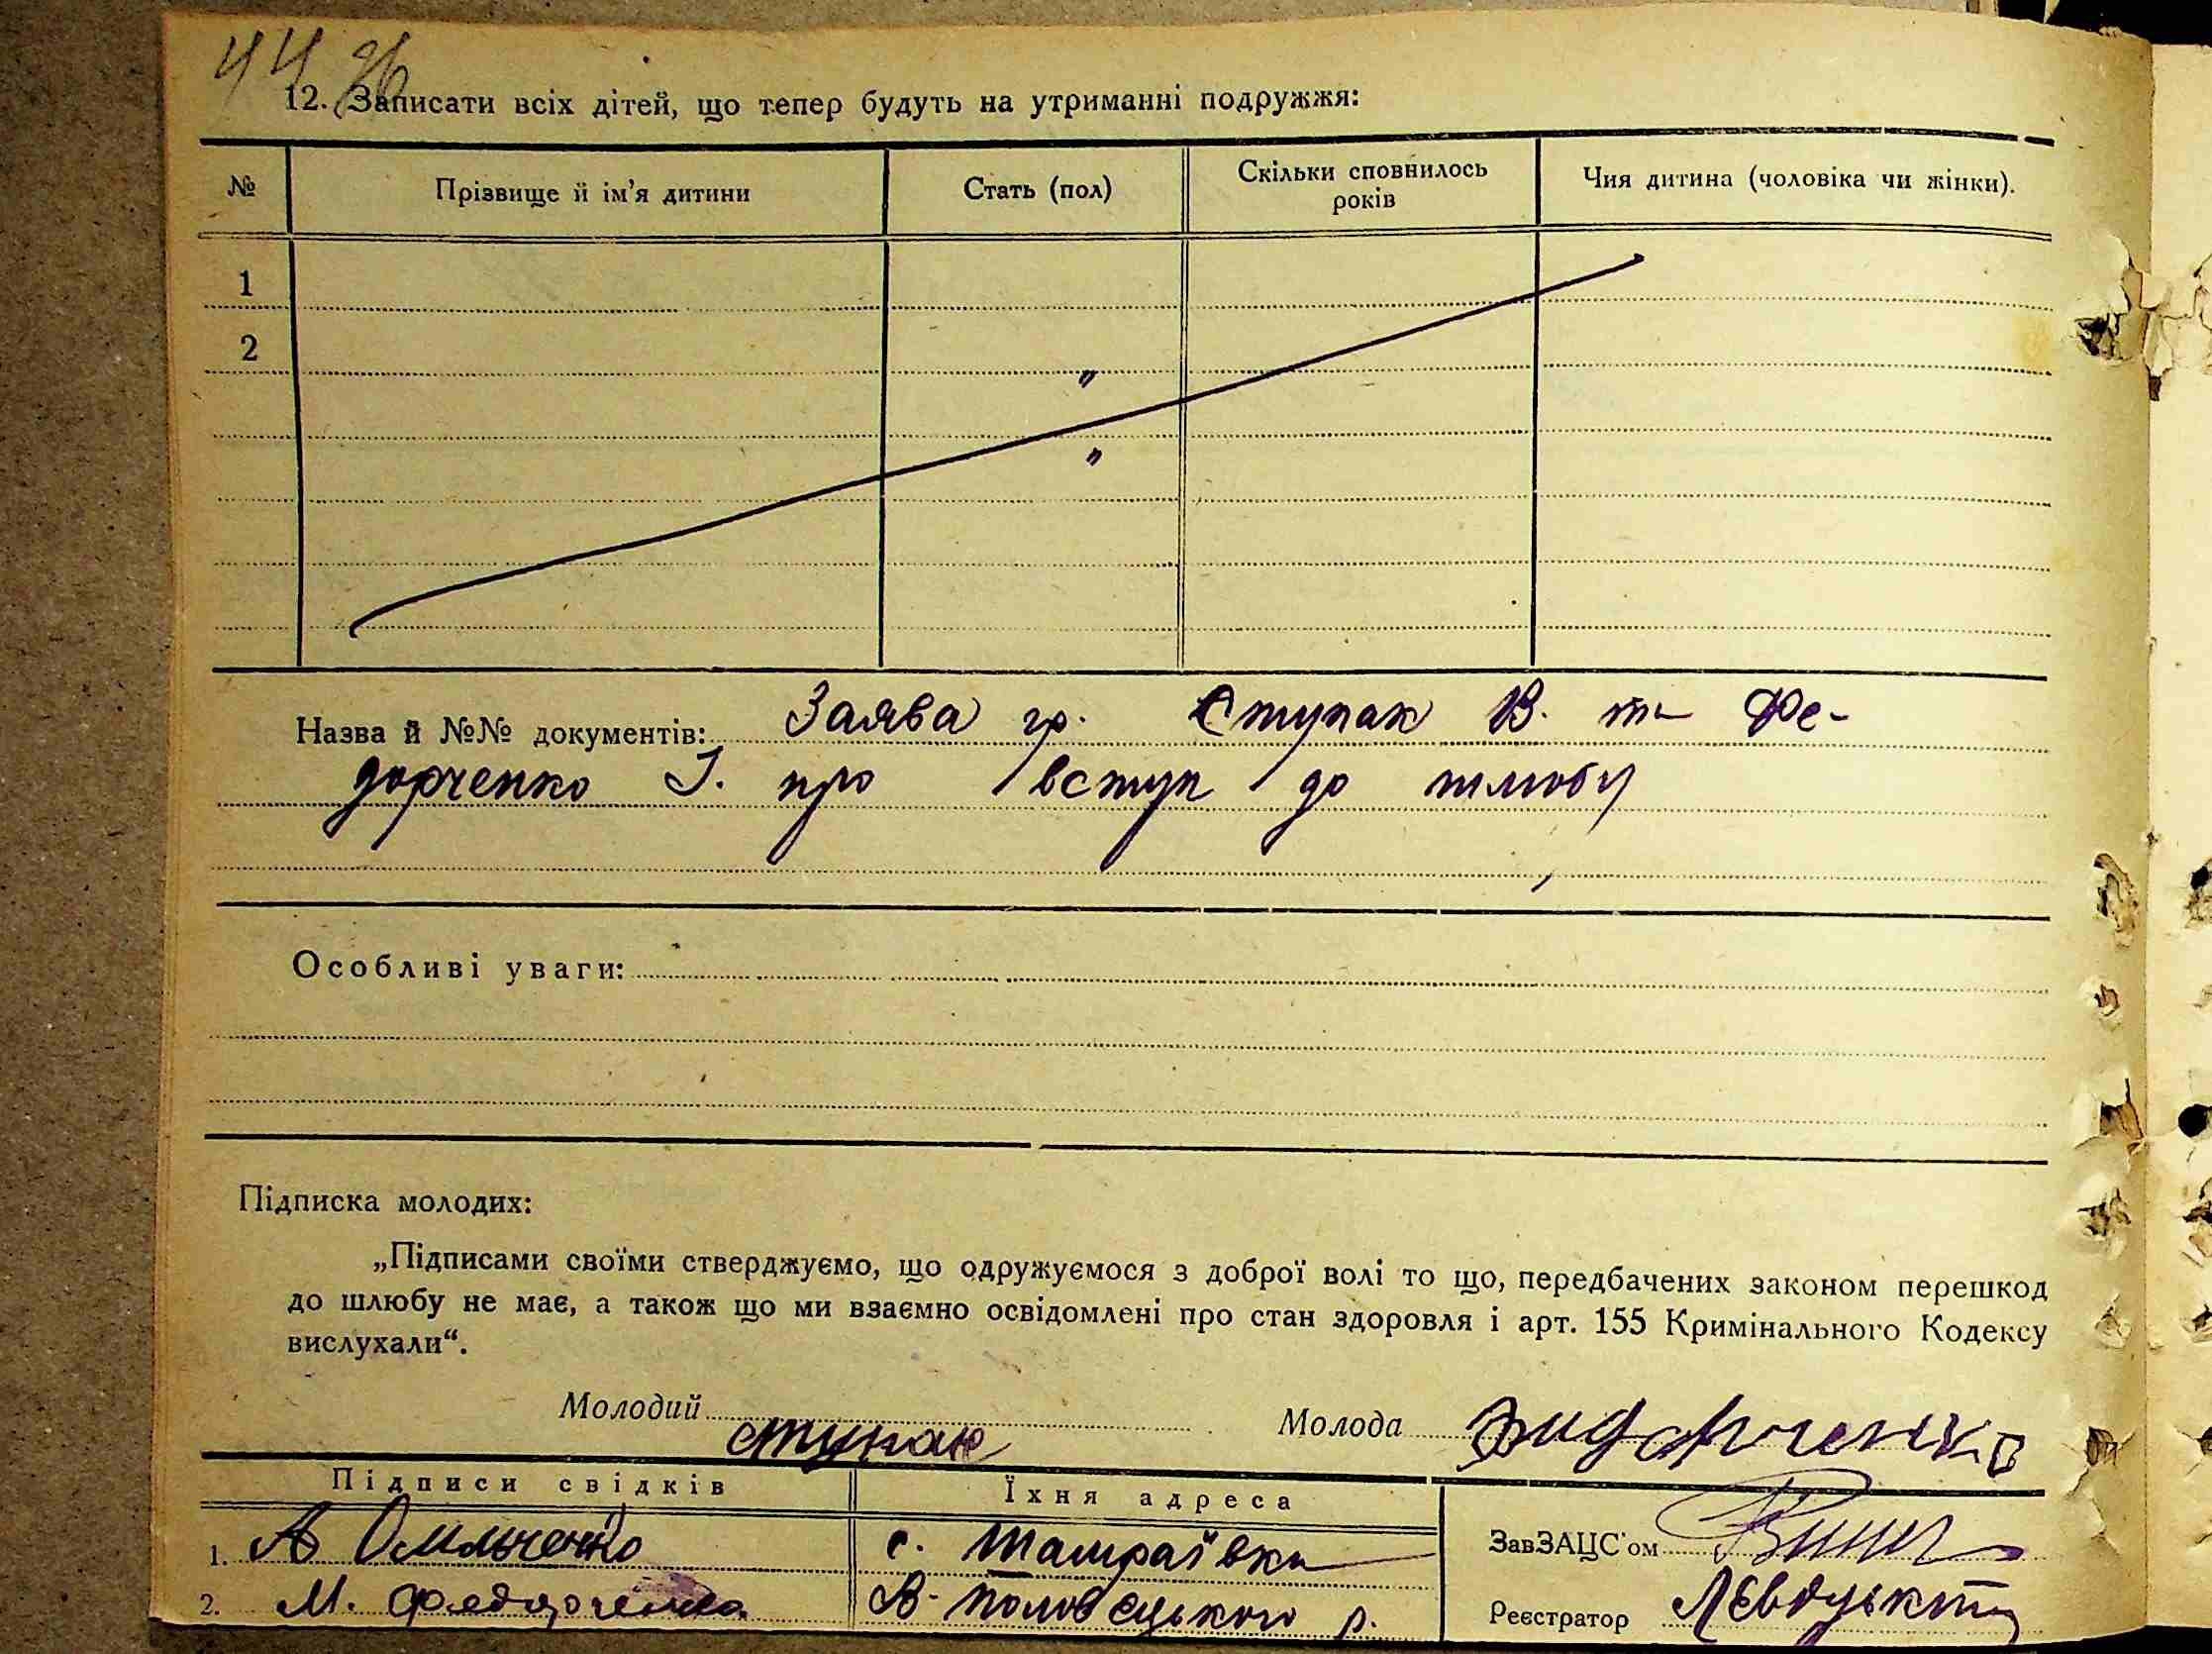 44 зв
12. Записати всіх дітей, що тепер будуть на утриманні подружжя:
№ Прізвище й ім'я дитини Стать (пол) Скільки сповнилось років Чия дитина (чоловіка чи жінки).
1
2
"
"
Назва й №№ документів: Заява гр. Ступак В. та Фе-
дорченко І. про вступ до шлюбу
Особливі уваги:
Підписка молодих:
„Підписами своїми стверджуємо, що одружуємося з доброї волі то що, передбачених законом перешкод
до шлюбу не має, а також що ми взаємно освідомлені про стан здоровля і арт. 155 Кримінального Кодексу
вислухали“.
Молодий ступак Молода Фидорченко
Підписи свідків Їхня адреса
1. А Омельченко с. Шамраївки ЗавЗАЦС'ом
2. М. Федорченко В-Половецького р. Реєстратор